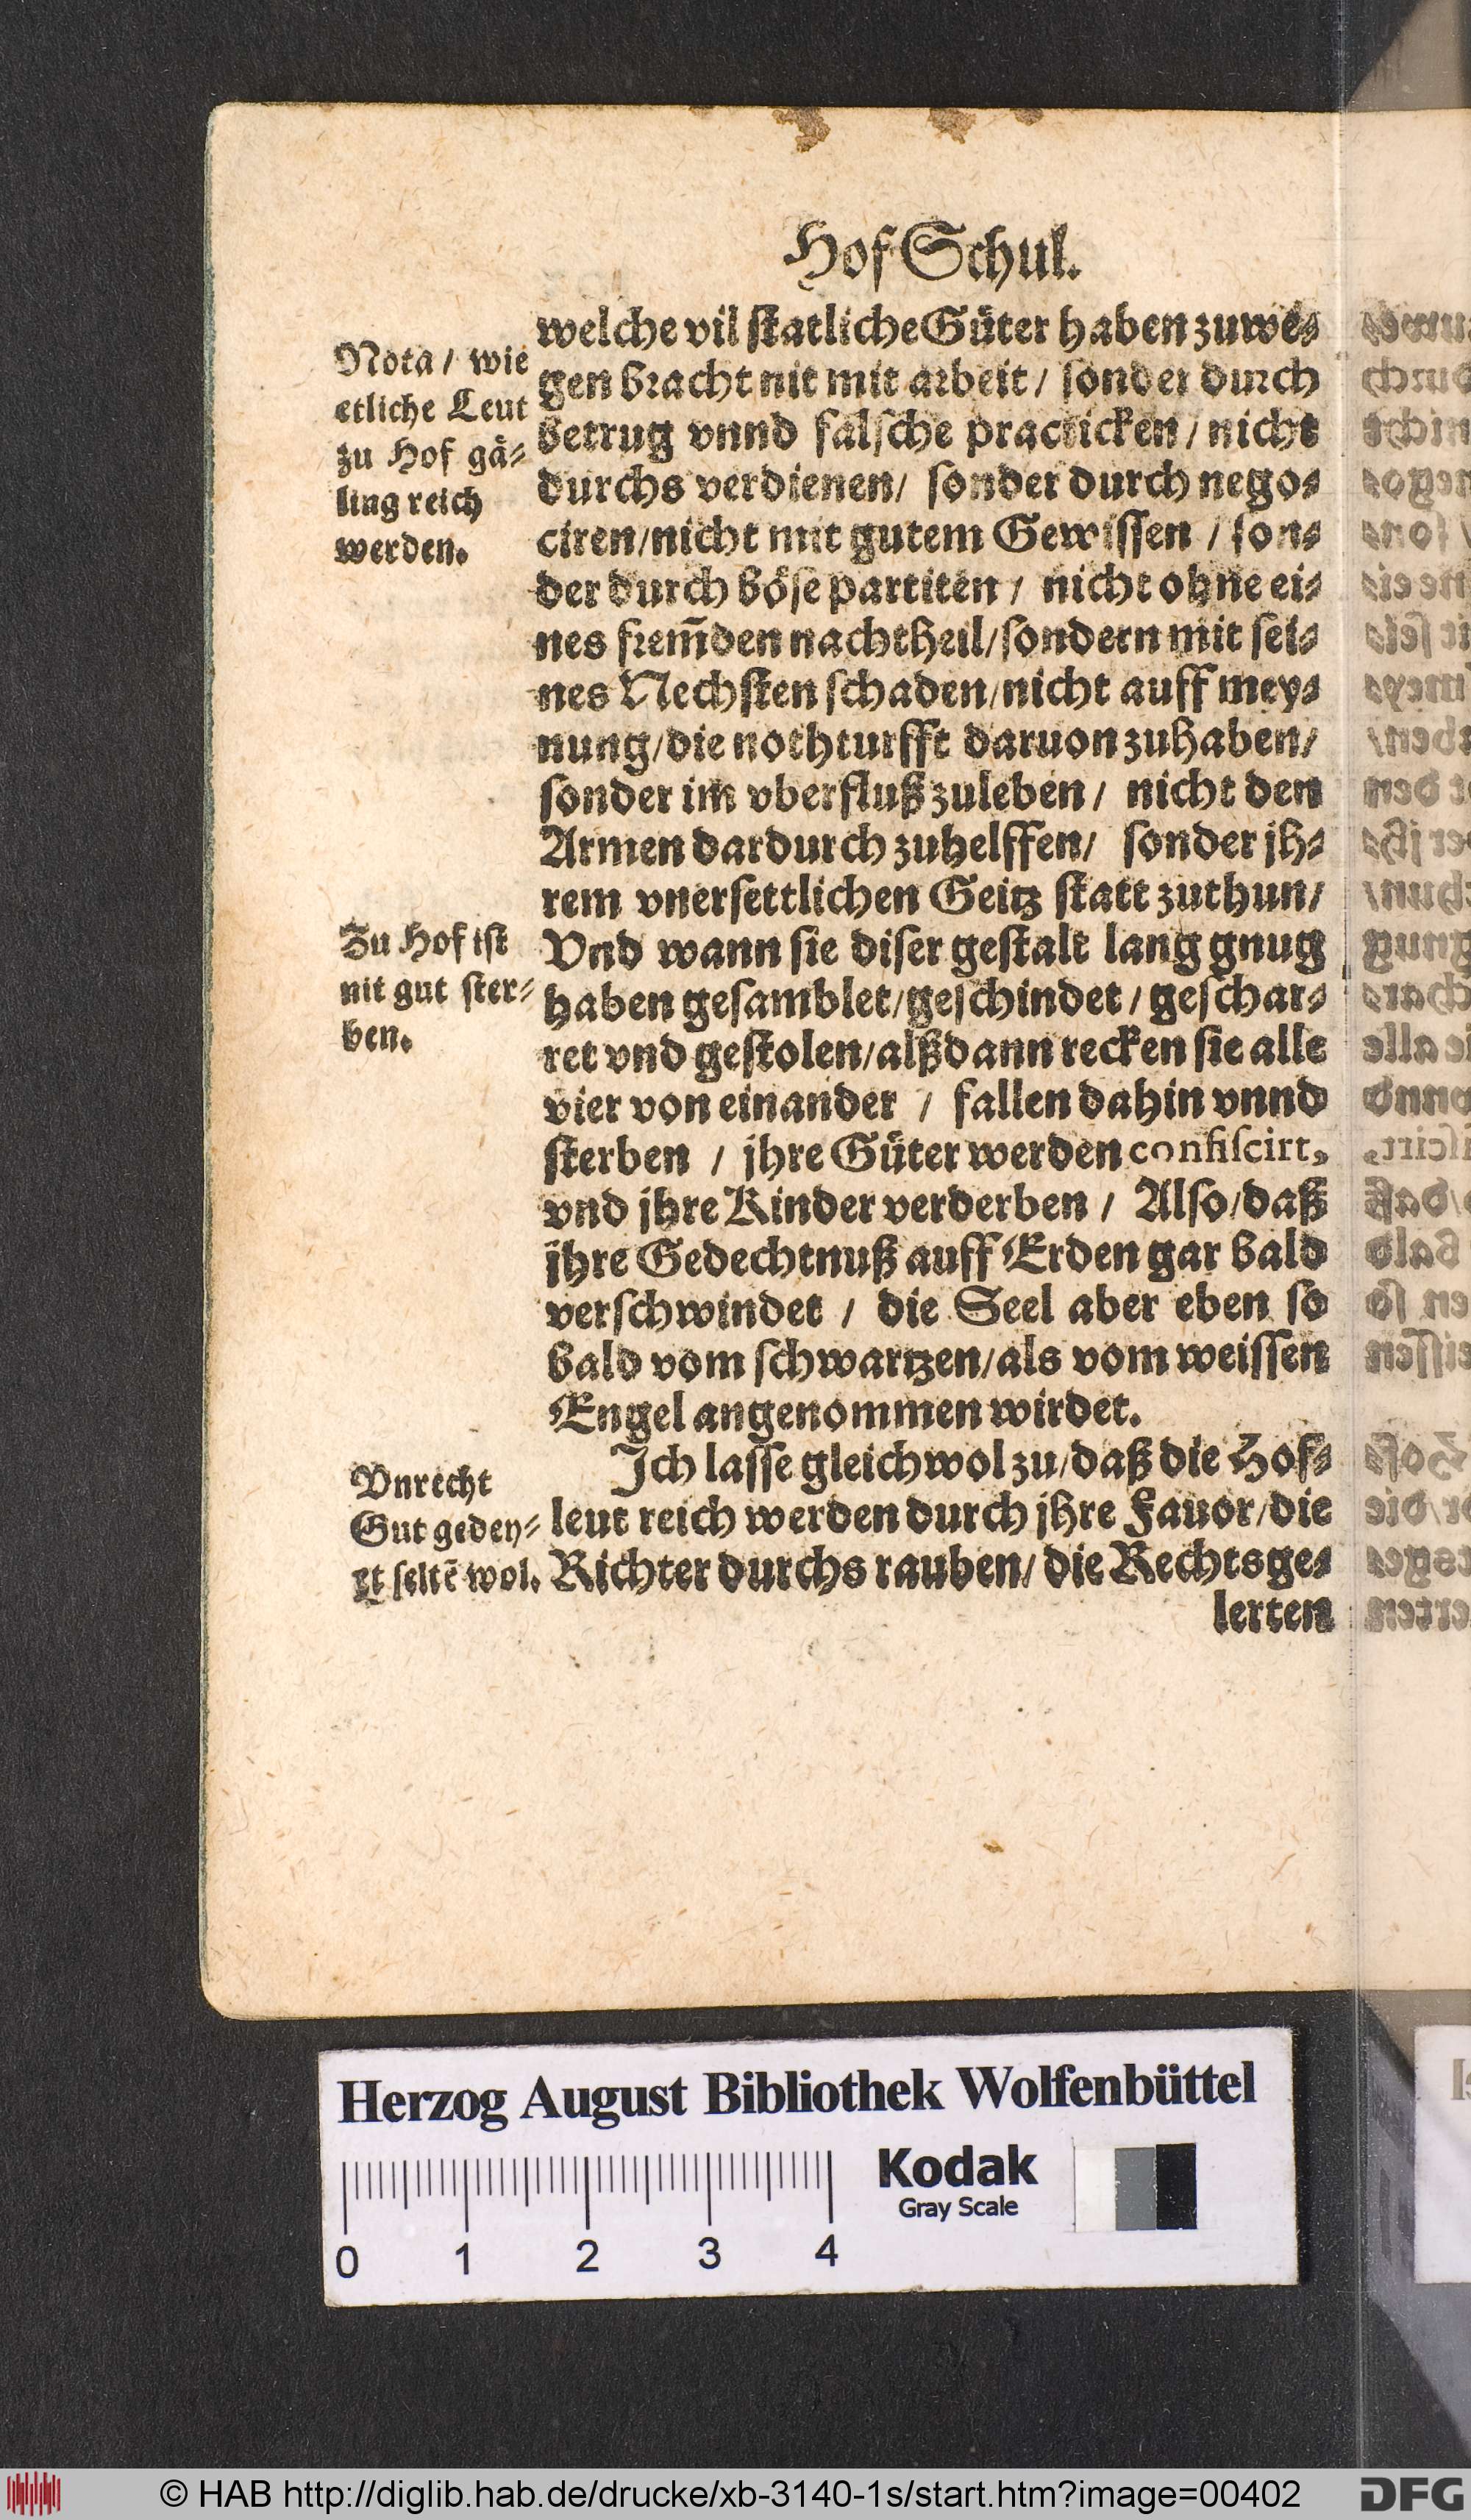 Hof Schul.
Nota / wie
etliche Leut
zu Hof gä⸗
ling reich
werden.
welche vil statliche Güter haben zuwe⸗
gen bracht nit mit arbeit / sonder durch
betrug vnnd falsche practicken / nicht
durchs verdienen / sonder durch nego⸗
ciren / nicht mit gutem Gewissen / son⸗
der durch böse partiten / nicht ohne ei⸗
nes frem̃den nachtheil / sondern mit sei⸗
nes Nechsten schaden / nicht auff mey⸗
nung / die nothturfft daruon zuhaben /
sonder im vberfluß zuleben / nicht den
Armen dardurch zuhelffen / sonder jh⸗
rem vnersettlichen Geitz statt zuthun /
Zu Hof ist
nit gut ster⸗
ben.
Vnd wann sie diser gestalt lang gnug
haben gesamblet / geschindet / geschar⸗
ret vnd gestolen / alßdann recken sie alle
vier von einander / fallen dahin vnnd
sterben / jhre Güter werden confiscirt,
vnd jhre Kinder verderben / Also / daß
jhre Gedechtnuß auff Erden gar bald
verschwindet / die Seel aber eben so
bald vom schwartzen / als vom weissen
Engel angenommen wirdet.
Vnrecht
Gut gedey⸗
et seltẽ wol.
Ich lasse gleichwol zu / daß die Hof⸗
leut reich werden durch jhre Fauor / die
Richter durchs rauben / die Rechtsge⸗
lerten
Herzog August Bibliothek Wolfenbüttel
Kodak
Gray Scale
0 1 2 3 4
© HAB http://diglib.hab.de/drucke/xb-3140-1s/start.htm?image=00402
DFG